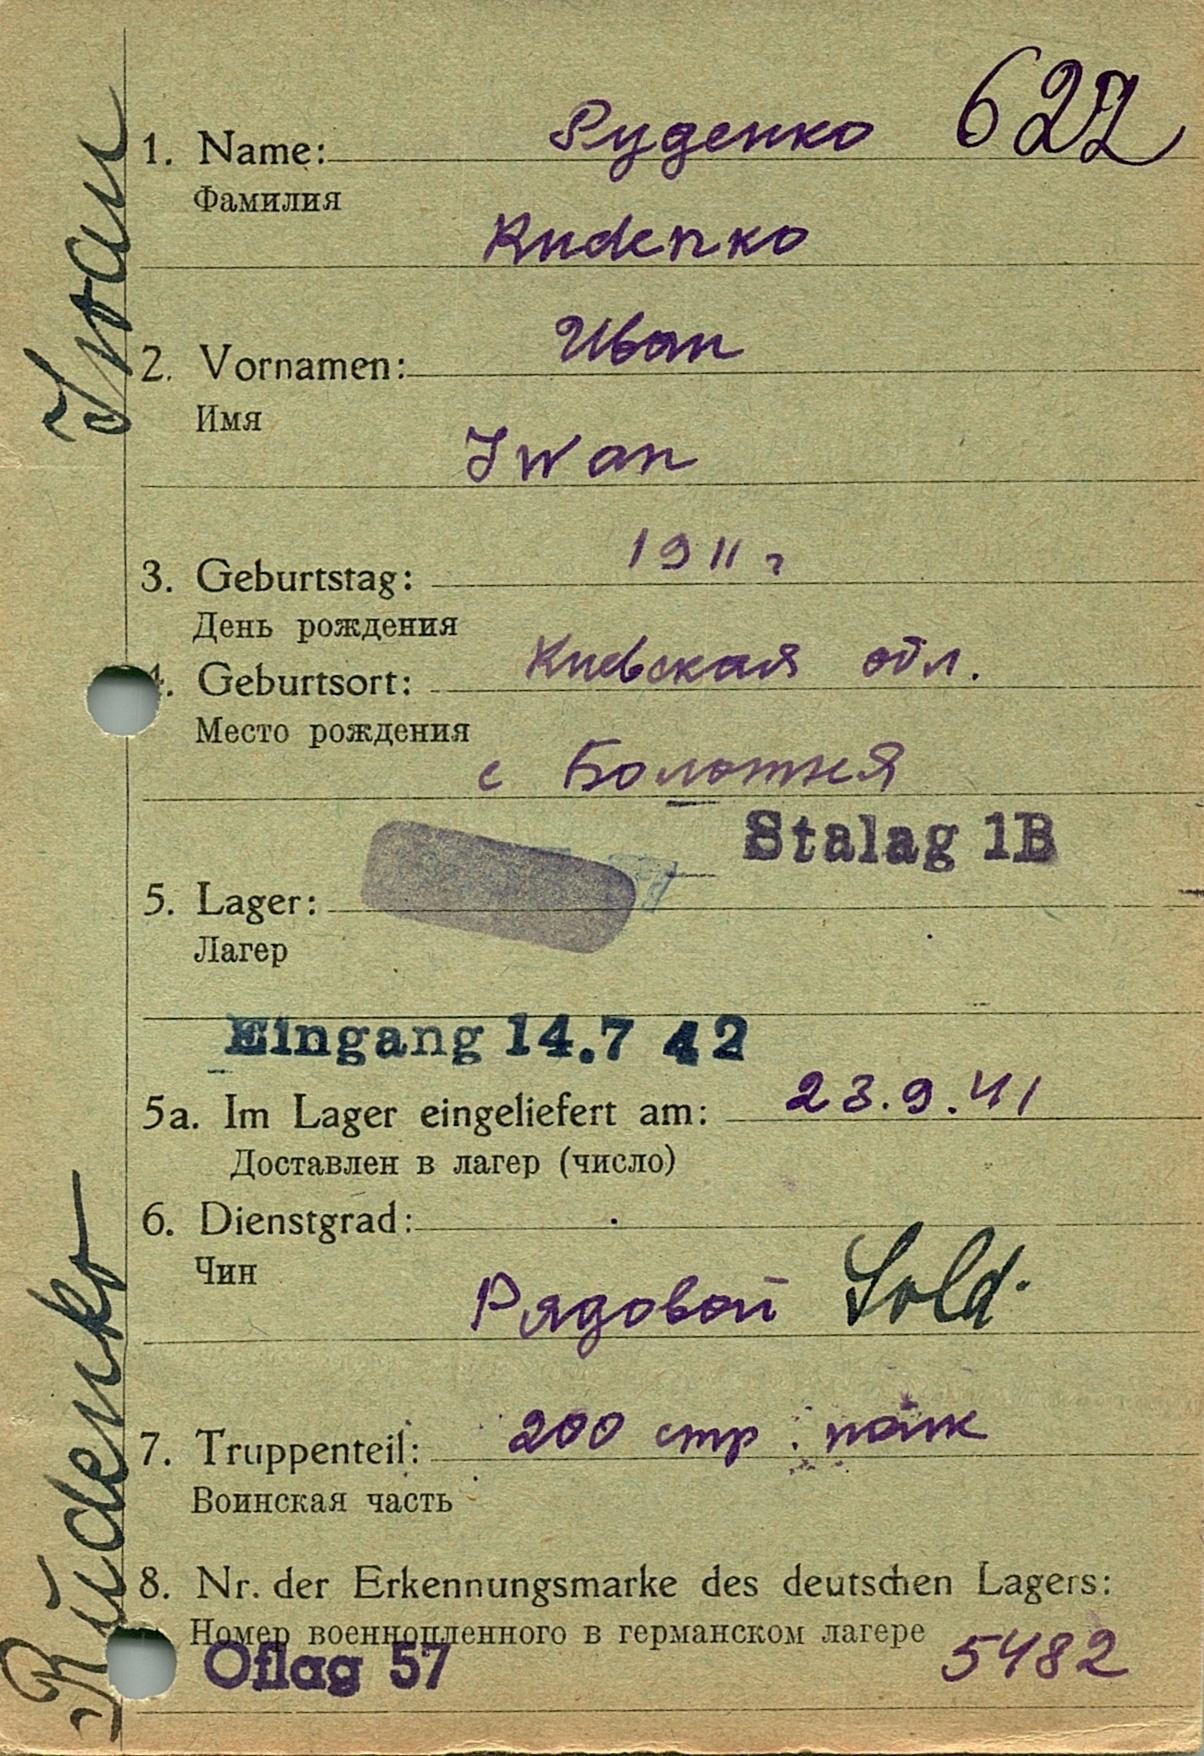 627
1. Name: Руденко
Фамилия
Rudenko
2. Vornamen: Иван
Имя
Iwan
3. Geburtstag: 1911 г
День рождения
4. Geburtsort: Киевская обл.
Место рождения
с Болотня
Stalag 1B
5. Lager:
Лагер
Eingang 14.7 42
5a. Im Lager eingeliefert am: 23.9.41
Доставлен в лагер (число)
6. Dienstgrad:
Чин
Рядовой Sold.
7. Truppenteil: 200 стр. полк
Воинская часть
8. Nr. der Erkennungsmarke des deutschen Lagers:
Номер военнопленного в германском лагере
Oflag 57 5482
Rudenko Iwan